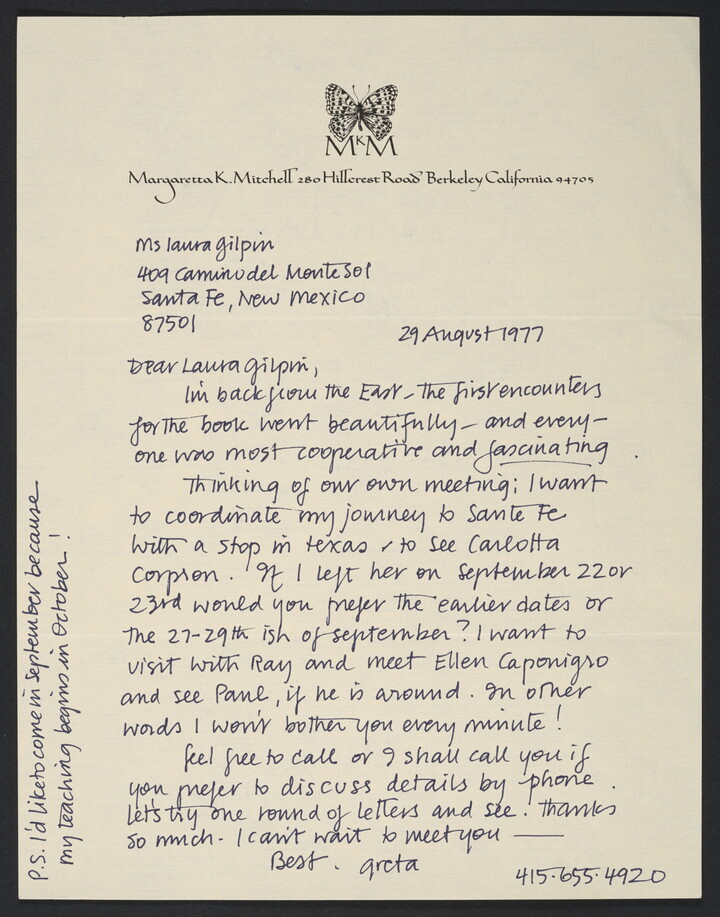 MKM
Margaretta K. Mitchell 280 Hillcrest Road Berkeley California 94705
Ms Laura Gilpin
409 Camino del Monte Sol
Santa Fe, New Mexico
87501
29 August 1977
Dear Laura Gilpin,
I'm back from the East - the first encounters
for the book went beautifully - and every-
one was most cooperative and fascinating.
Thinking of our own meeting; I want
to coordinate my journey to Santa Fe
with a stop in Texas to see Carlotta
Corpron. If I left her on September 22 or
23rd would you prefer the earlier dates or
the 27-29th ish of September? I want to
visit with Ray and meet Ellen Caponigro
and see Paul, if he is around. In other
words I won't bother you every minute!
Feel free to call or I shall call you if
you prefer to discuss details by phone.
Let's try one round of letters and see. Thanks
so much - I can't wait to meet you —
Best. Greta
415-655-4920
P.S. I'd like to come in September because
my teaching begins in October!